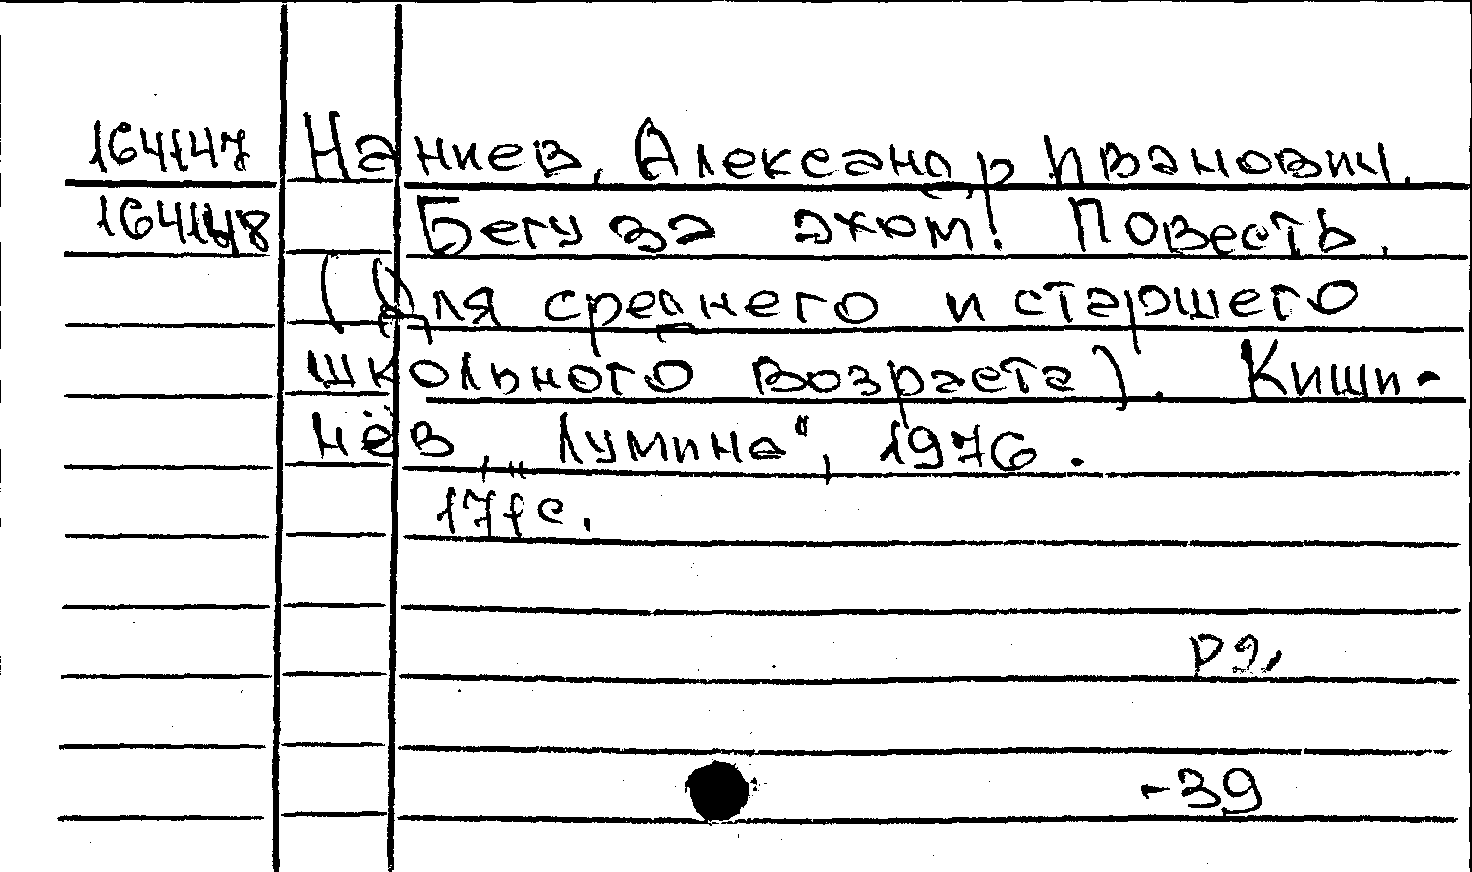 164147 Наниев, Александр Иванович.
164148 Бегу за эхом! Повесть.
(Для среднего и старшего
школьного возраста). Киши-
нёв, „Лумина“, 1976.
171с.
р2,
-39